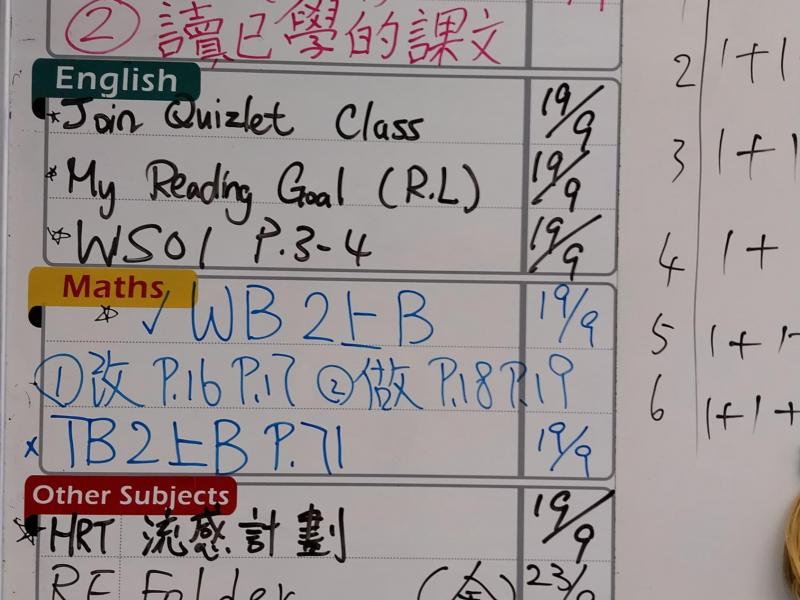 ② 讀已學的課文
English
☆Join Quizlet Class 19/9
☆My Reading Goal (R.L) 19/9
☆WS01 P.3-4 19/9
Maths
☆ ✓ WB 2上B 19/9
①改 P.16 P.17 ②做 P.18 P.19
x TB 2上B P.71 19/9
Other Subjects
☆HRT 流感計劃 19/9
RE Folder (全) 23/9
2 1+1
3 1+1
4 1+
5 1+
6 1+1+